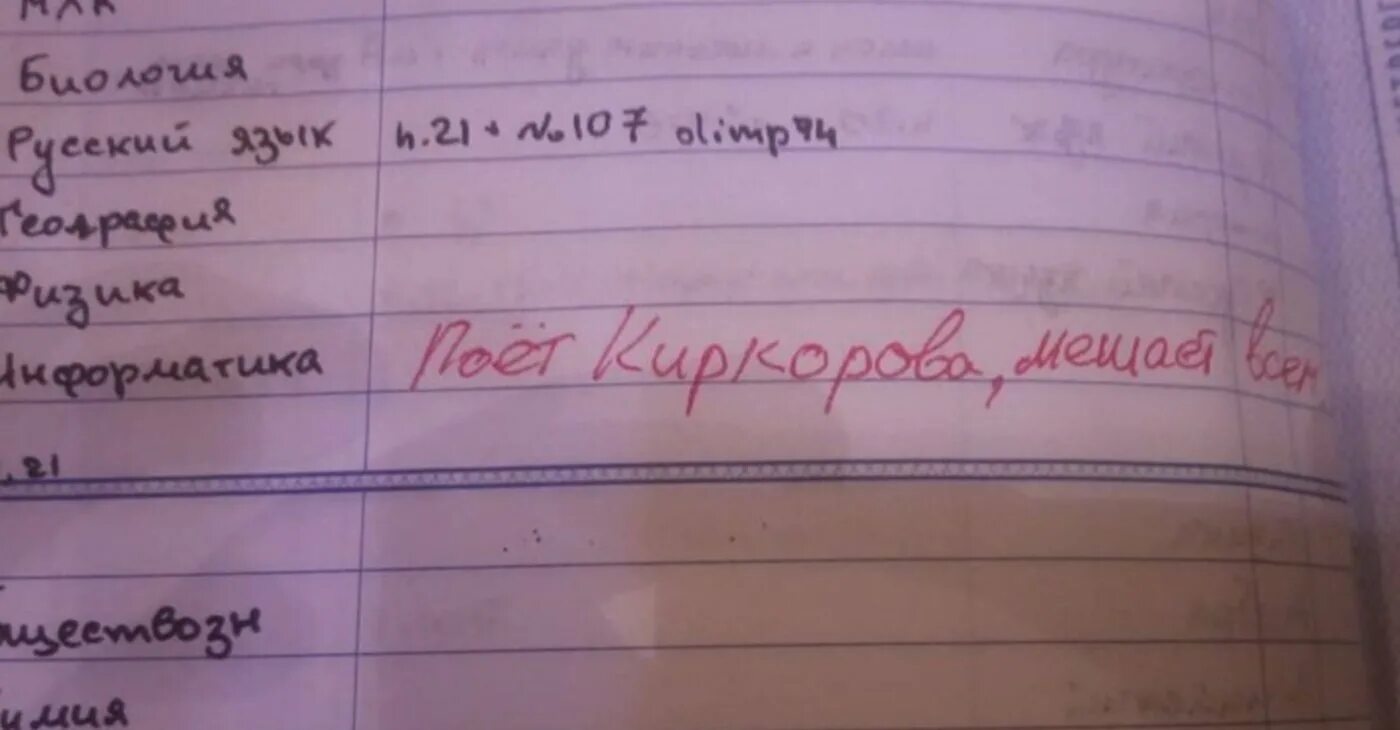 МХК
Биология
Русский язык п.21 + №107 olimp74
География
Физика
Информатика Поёт Киркорова, мешает всем
.21
бществозн
имия